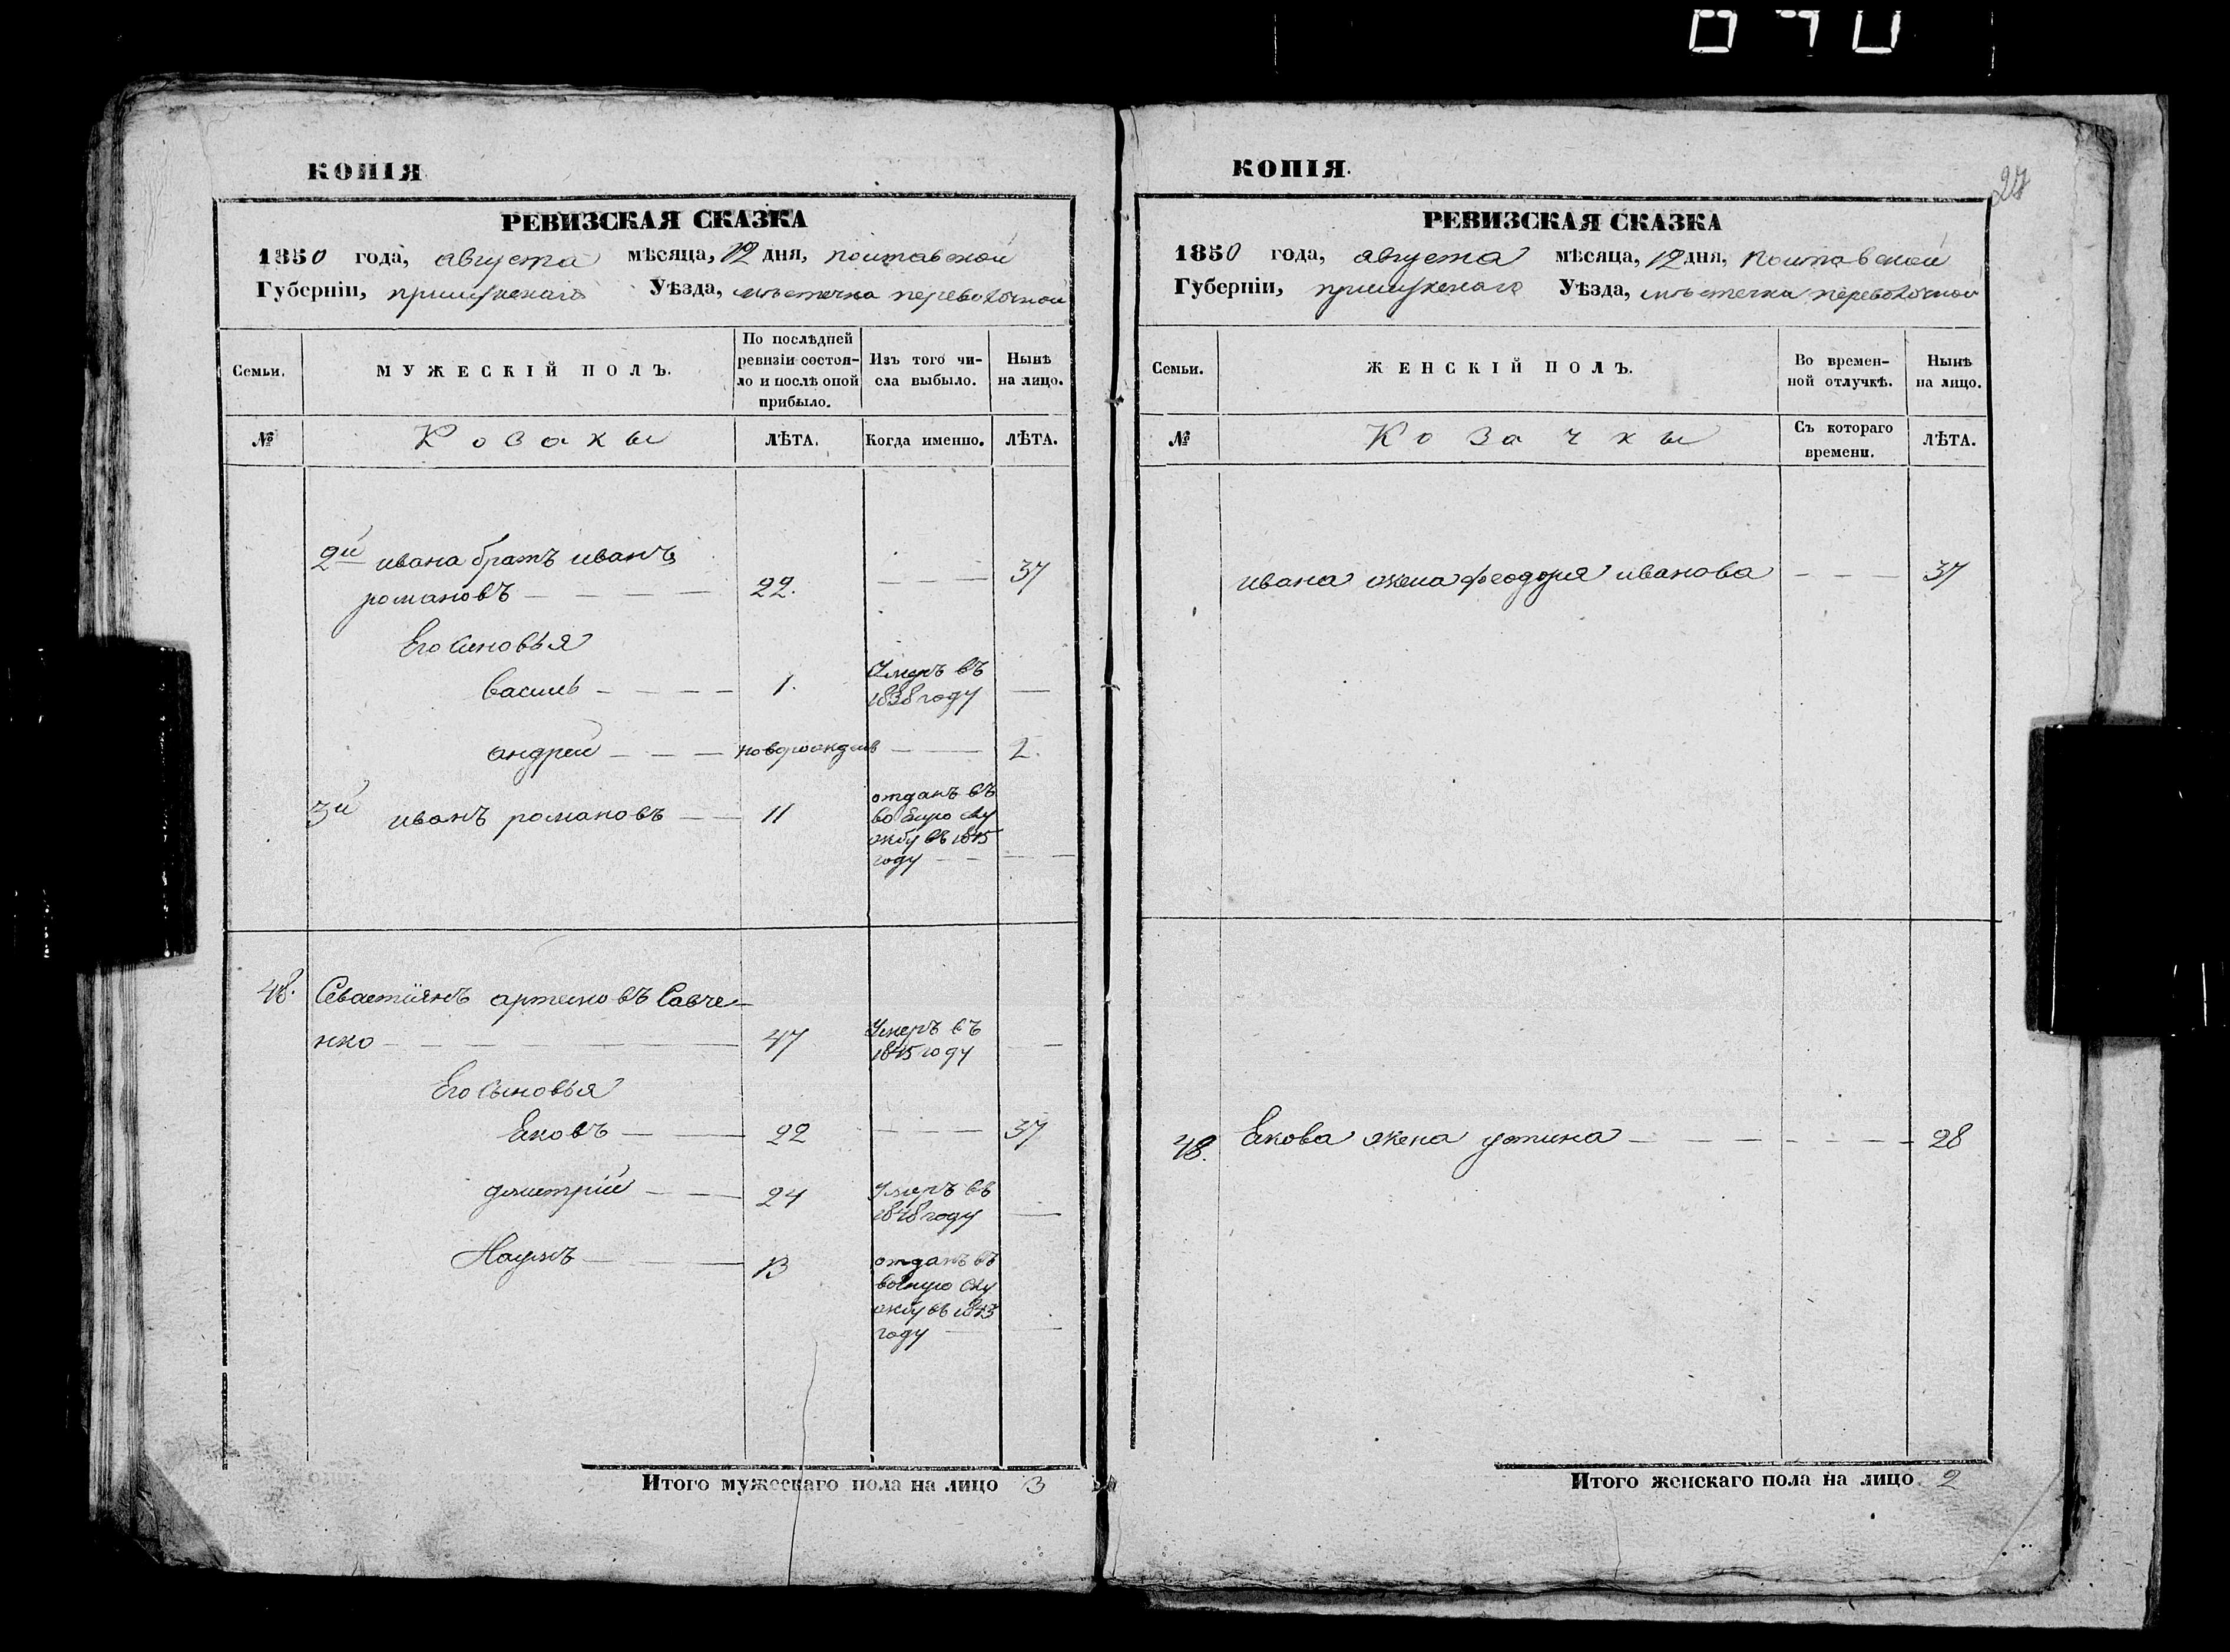 КОПІЯ
РЕВИЗСКАЯ СКАЗКА
1850 года, августа мѣсяца, 12 дня, полтавской
Губерніи, прилукскаго Уѣзда, мѣстечка переволочной
Семьи.
МУЖЕСКІЙ ПОЛЪ.
По послѣдней
ревизіи состоя-
ло и послѣ оной
прибыло.
Изъ того чи-
сла выбыло.
Нынѣ
на лицо.
№
Козаки
ЛѢТА.
Когда именно.
ЛѢТА.
2й ивана братъ иванъ
романовъ 22. 37
Его синовья
василь 1. Умеръ въ
1838 году
андрей новорожден 2.
3й иванъ романовъ 11 отданъ въ
воѣную слу
жбу въ 1845
году
48. Севастіянъ артемовъ Савче-
нко 47 Умеръ въ
1845 году
Его сыновья
Яковъ 22 37
дмитрій 24 Умеръ въ
1848 году
Наумъ 13 отданъ въ
воѣную слу
жбу въ 1843
году
Итого мужескаго пола на лицо 3
КОПІЯ.
27
РЕВИЗСКАЯ СКАЗКА
1850 года, августа мѣсяца, 12 дня, полтавской
Губерніи, прилукскаго Уѣзда, мѣстечка переволочной
Семьи.
ЖЕНСКІЙ ПОЛЪ.
Во времен-
ной отлучкѣ.
Нынѣ
на лицо.
№
Козачки
Съ котораго
времени.
ЛѢТА.
ивана жена феодора иванова 37
48. Якова жена устина 28
Итого женскаго пола на лицо. 2